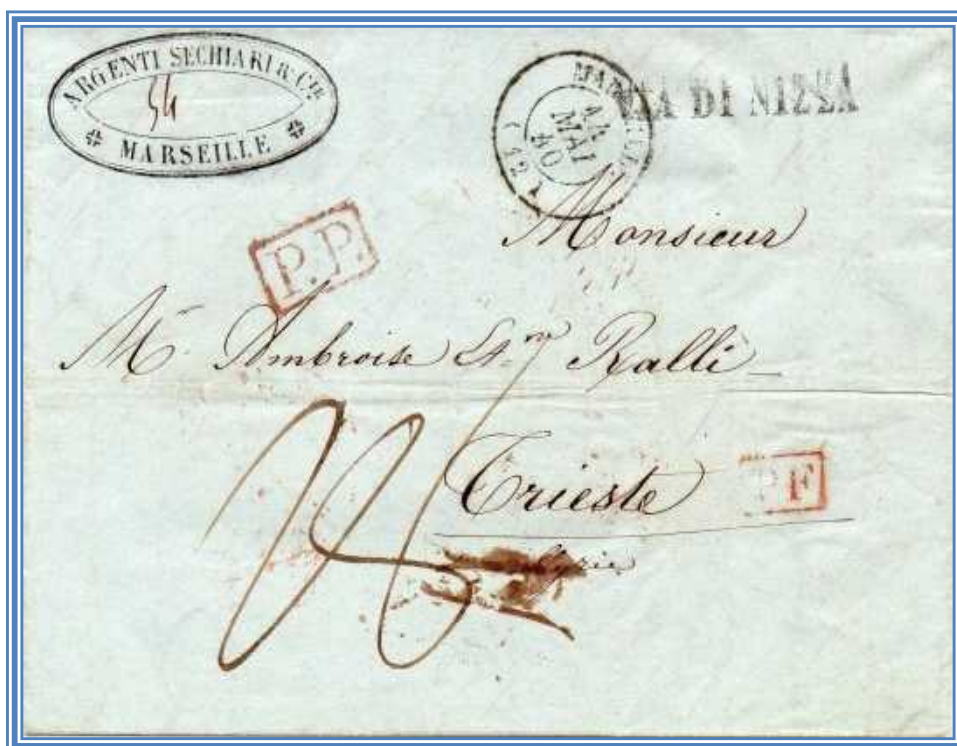 ARGENTI SECHIARI & CIE
54
MARSEILLE
14
MAI
50
(12)
VIA DI NIZZA
P.P.
Monsieur
Mr Ambroise St. Ralli
Trieste
P F